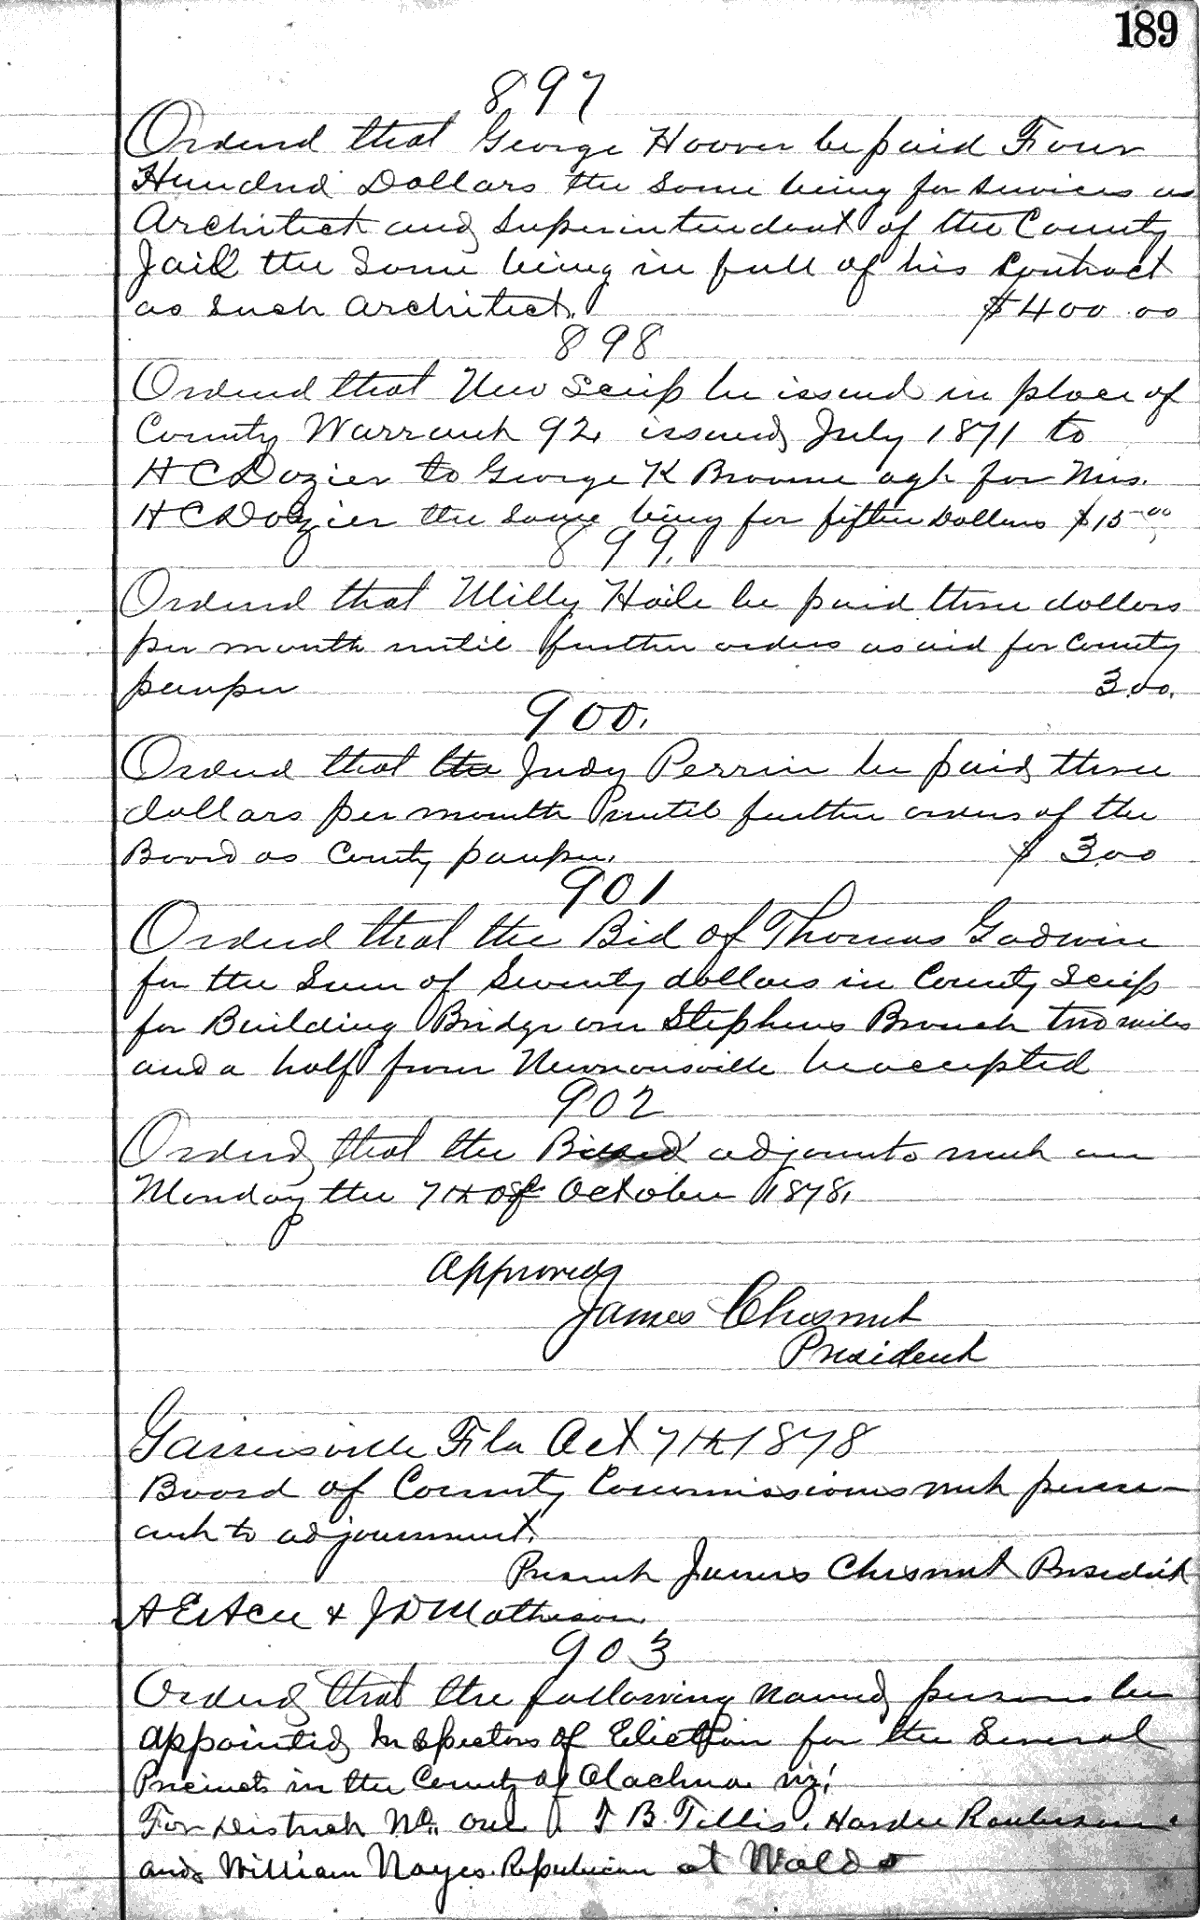 189
897
Ordered that George Hoover be paid Four
Hundred Dollars the Same being for Services as
Architect and Superintendent of the County
Jail the Same being in full of his Contract
as Such Architect. $400.00
898
Ordered that New Scrip be issued in place of
County Warrant 92, issued July 1871 to
H C Dozier to George K Broome agt for Mrs.
H C Dozier the same being for fifteen Dollars $15.00
899.
Ordered that Milly Haile be paid three dollars
per month until further orders as aid for County
pauper 3.00.
900.
Ordered that the Judy Perrin be paid three
dollars per month until further orders of the
Board as County pauper. $ 3.00
901
Ordered that the Bid of Thomas Godwin
for the Sum of Seventy dollars in County Scrip
for Building Bridge over Stephens Branch two miles
and a half from Newnonsville be accepted
902
Ordered that the Board adjourn to meet on
Monday the 7th of October 1878.
Approved
James Chesnut
President
Gainesville Fla Oct 7th 1878
Board of County Commissioners met pursu-
ant to adjournment.
Present James Chesnut President
& J D Matheson.
903
Ordered that the following named persons be
appointed Inspectors of Election for the Several
Precincts in the County of Alachua viz!
For District No. one T B. Tillis, Hardee
and William Noyes Republican at Waldo